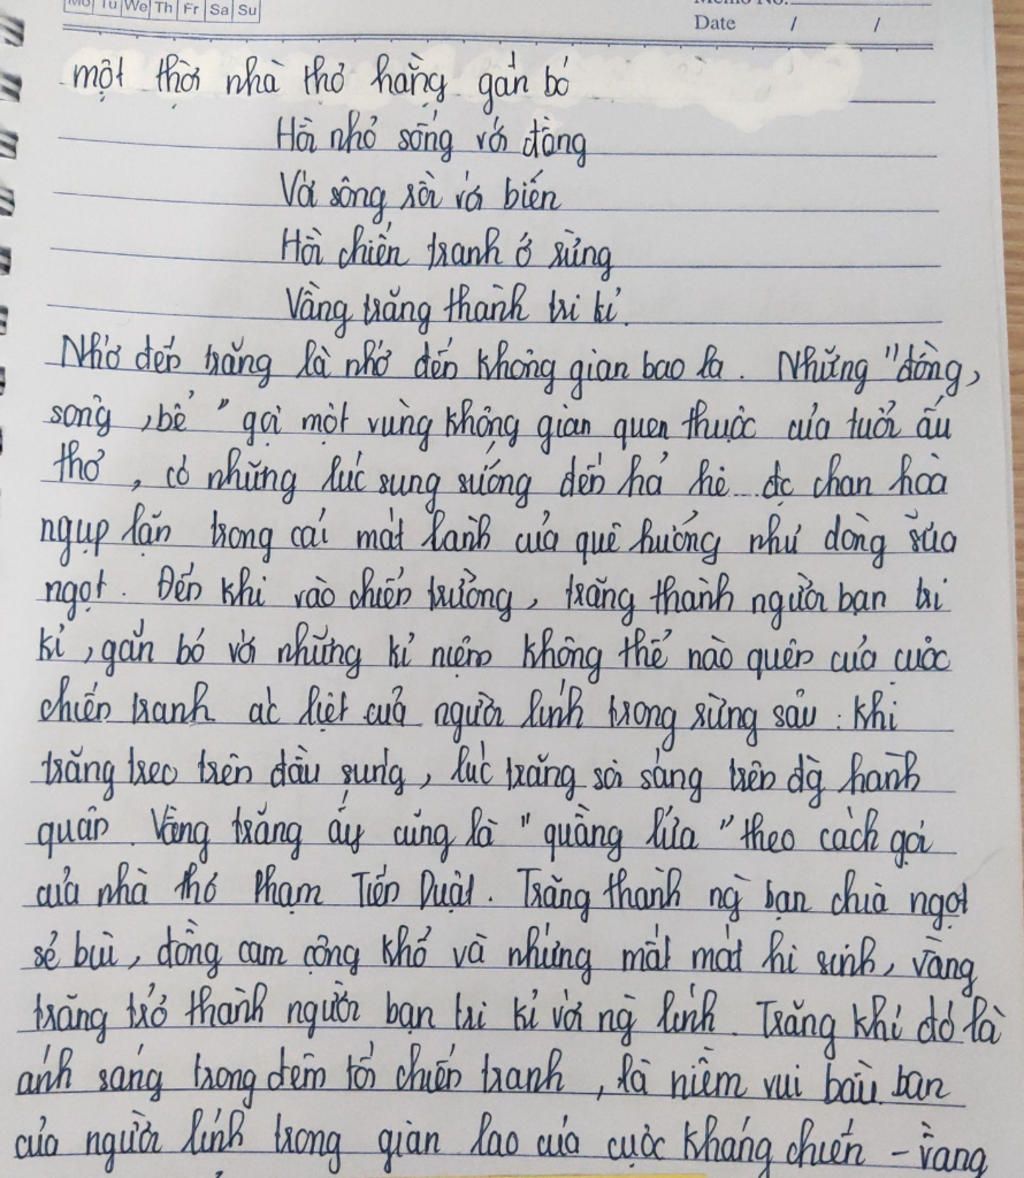 Mo Tu We Th Fr Sa Su
Memo No.
Date / /
một thời nhà thơ hằng gắn bó
Hồi nhỏ sống với đồng
Với sông rồi với biển
Hồi chiến tranh ở rừng
Vầng trăng thành tri kỉ.
Nhớ đến trăng là nhớ đến không gian bao la. Những "đồng,
sông, bể" gợi một vùng không gian quen thuộc của tuổi ấu
thơ, có những lúc sung sướng đến hả hê đc chan hoà
ngụp lặn trong cái mát lành của quê hương như dòng sữa
ngọt. Đến khi vào chiến trường, trăng thành người bạn tri
kỉ, gắn bó với những kỉ niệm không thể nào quên của cuộc
chiến tranh ác liệt của người lính trong rừng sâu: khi
trăng treo trên đầu súng, lúc trăng soi sáng trên đg hành
quân. Vầng trăng ấy cũng là "quầng lửa" theo cách gọi
của nhà thơ Phạm Tiến Duật. Trăng thành ng bạn chia ngọt
sẻ bùi, đồng cam cộng khổ và những mất mát hi sinh, vầng
trăng trở thành người bạn tri kỉ với ng lính. Trăng khi đó là
ánh sáng trong đêm tối chiến tranh, là niềm vui bầu bạn
của người lính trong gian lao của cuộc kháng chiến - vầng